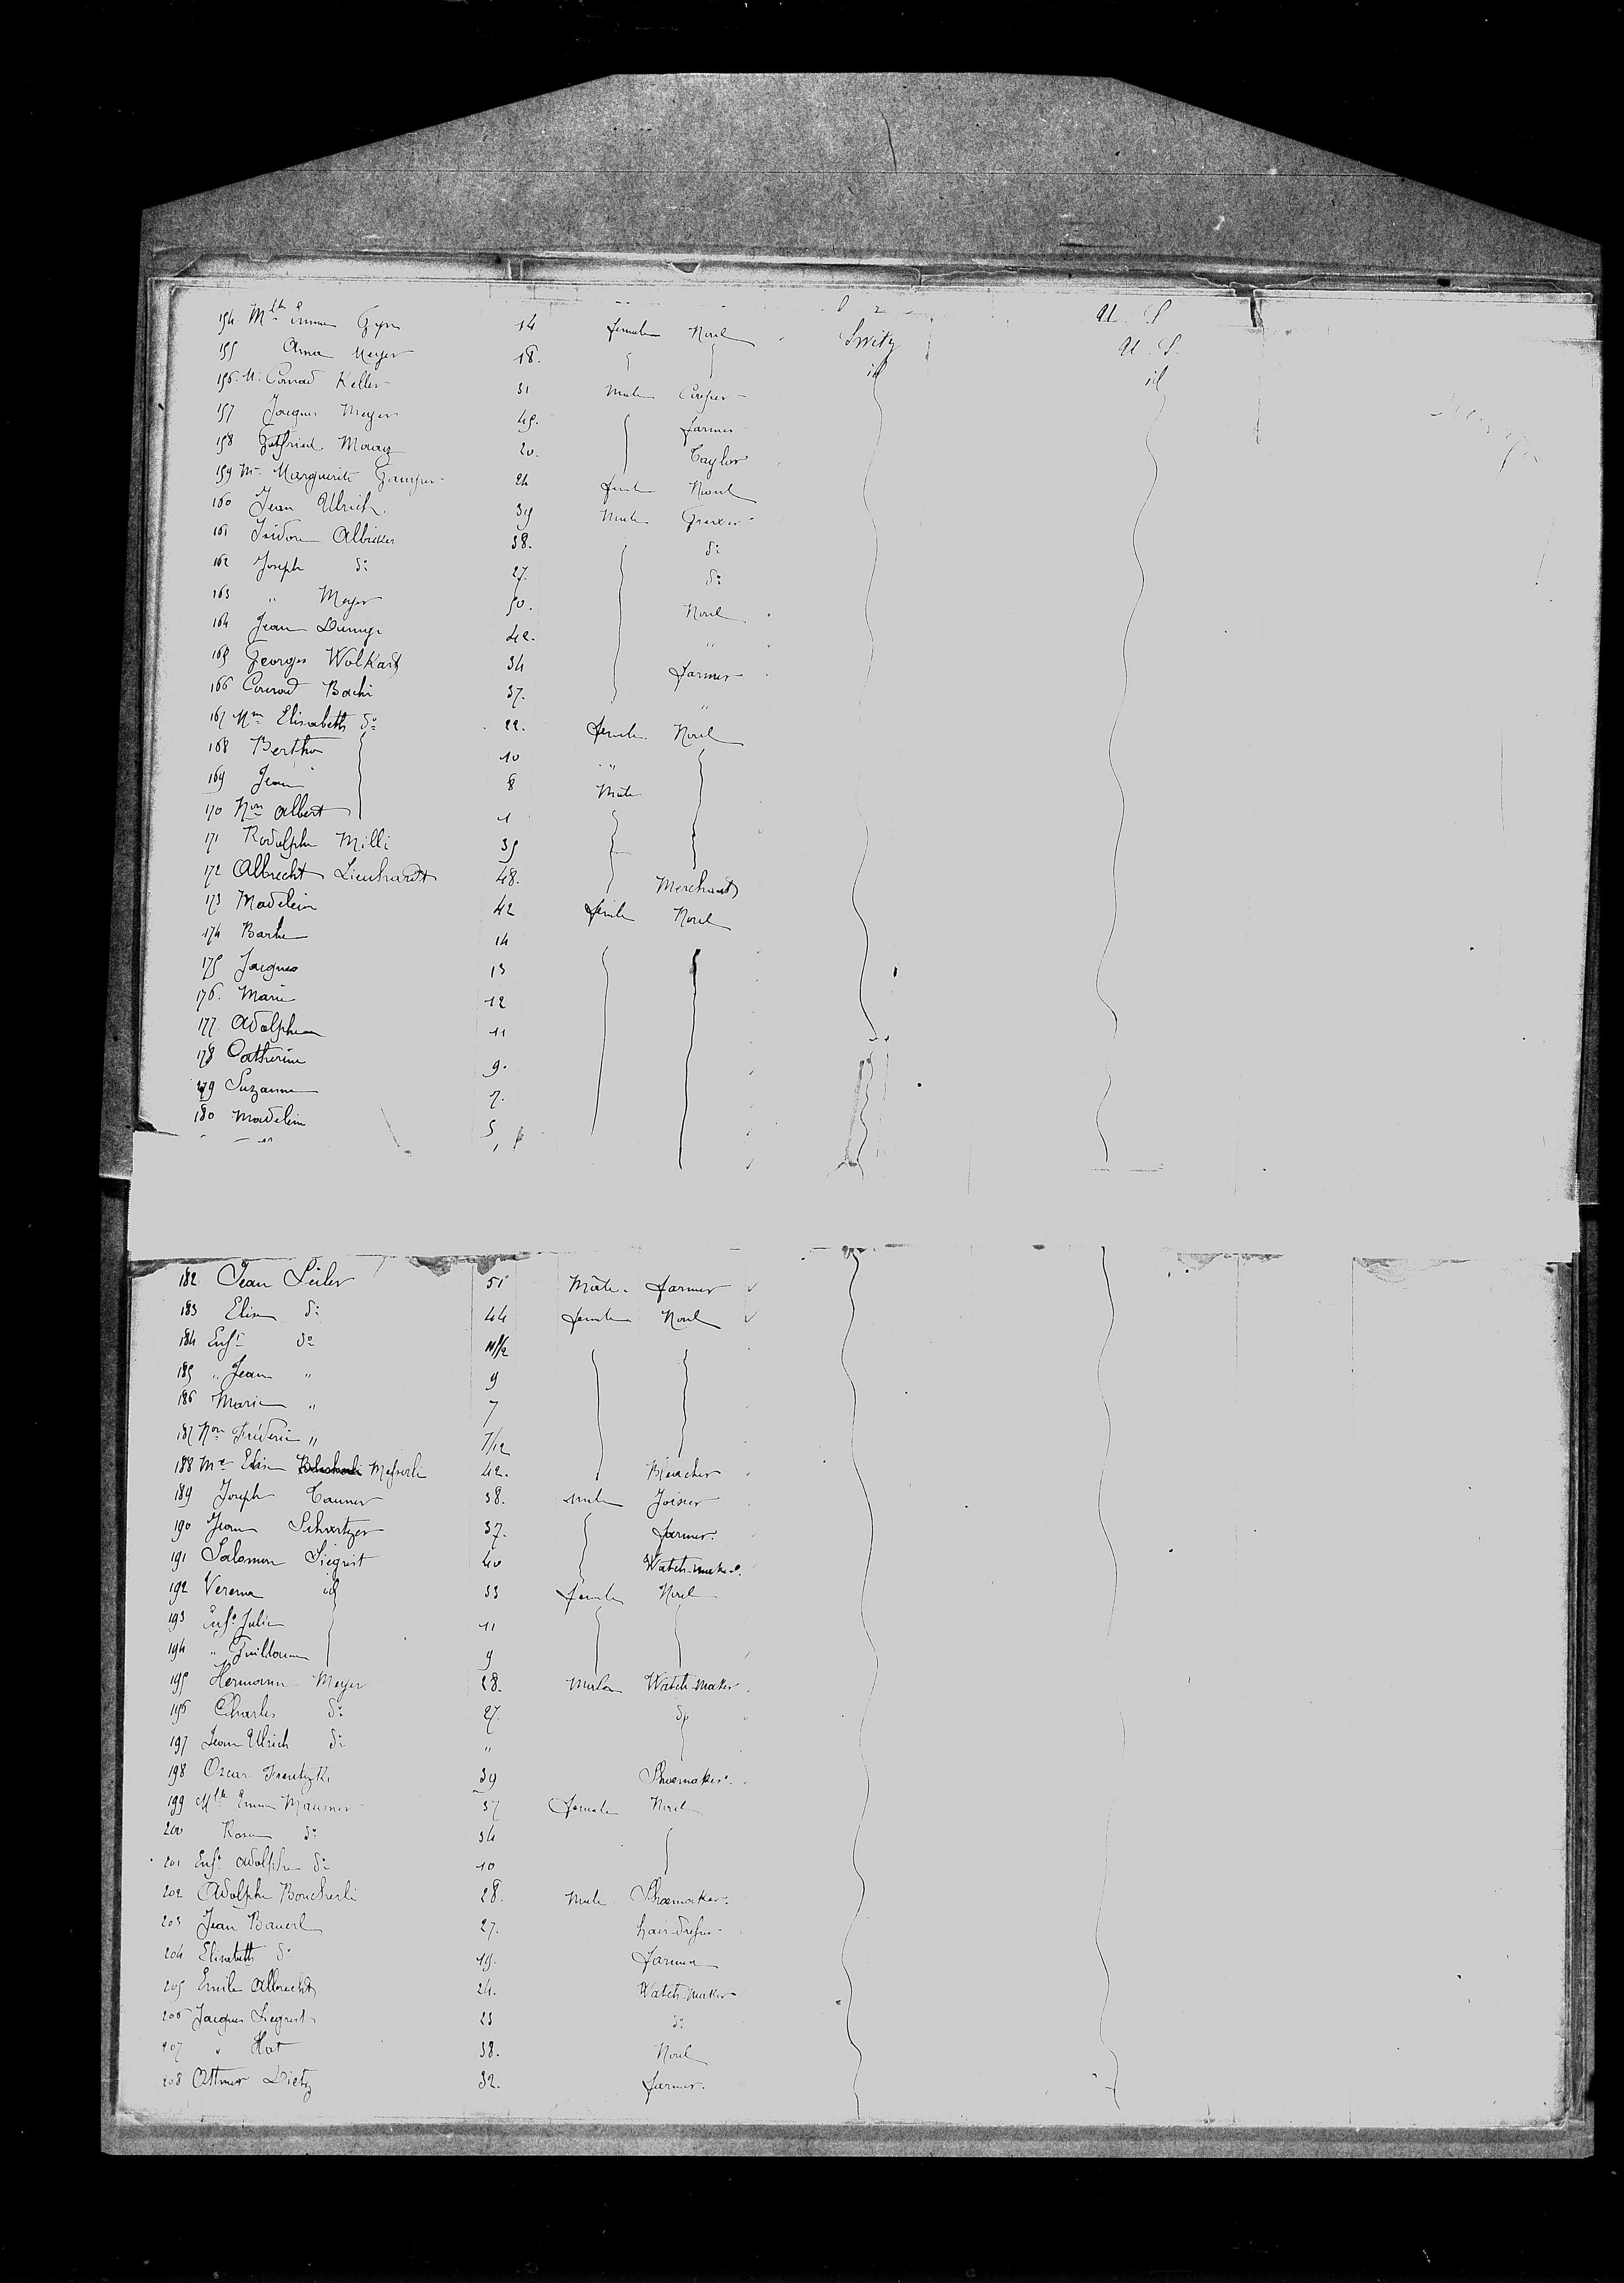 154 Mlle Emma Gysi 14 female None Switz U. S.
155 Anna Meyer 18. id U. S. id
156 M. Conrad Keller 31 Male Cooper
157 Jacques Meyer 45. farmer
158 Gotfried 20. Taylor
159 Marguerite 24 female None
160 Jean Ulrich 39 Male
161 Isidore Albicker 38. do
162 Joseph do 27. do
163 " Meyer 50. None
164 Jean 42. "
165 Georges Wolkart 34 farmer
166 Conrad Bachi 37. "
167 Mme Elisabeth do 22. female None
168 Bertha 10 "
169 Jean 8 Male
170 Non Albert 1
171 Rodolphe Milli 35
172 Albrecht Lienhardt 48. Merchant
173 Madelein 42 female None
174 14
175 Jacques 13
176. Marie 12
177. Adolphe 11
178 Catherine 9.
179 Suzanne 7.
180 Madelein 5
182 Jean Seiler 51 Male farmer
183 Elise do 44 female None
184 Enft do
185 " Jean " 9
186 Marie " 7
187 Non " 7/12
188 Me Elise Messerli 42. Bleacher
189 Joseph Tanner 38. male Joiner
190 Jean Schertzer 37. farmer.
191 Salomon Siegrist 40 Watch-maker.
192 Verena id 33 female None
193 Enft Julie 11
194 " Guillaume 9
195 Hermann Meyer 28. Male Watch-maker
196 Charles do 27. do
197 Jean Ulrich do "
198 Oscar 39 Shoemaker.
199 Mlle Emma 37 female None
200 Rosa do 34
201 Enft Adolphe do 10
202 Adolphe Boucherli 28. Male Shoemaker.
203 Jean Bauerl 27. hair-dresser
204 Elisabeth do 19. farmer
205 Emile Albrecht 24. Watch-maker
206 Jacques Siegrist 23 do
207 " Hot 38. None
208 Ottmer Dietz 32. farmer.